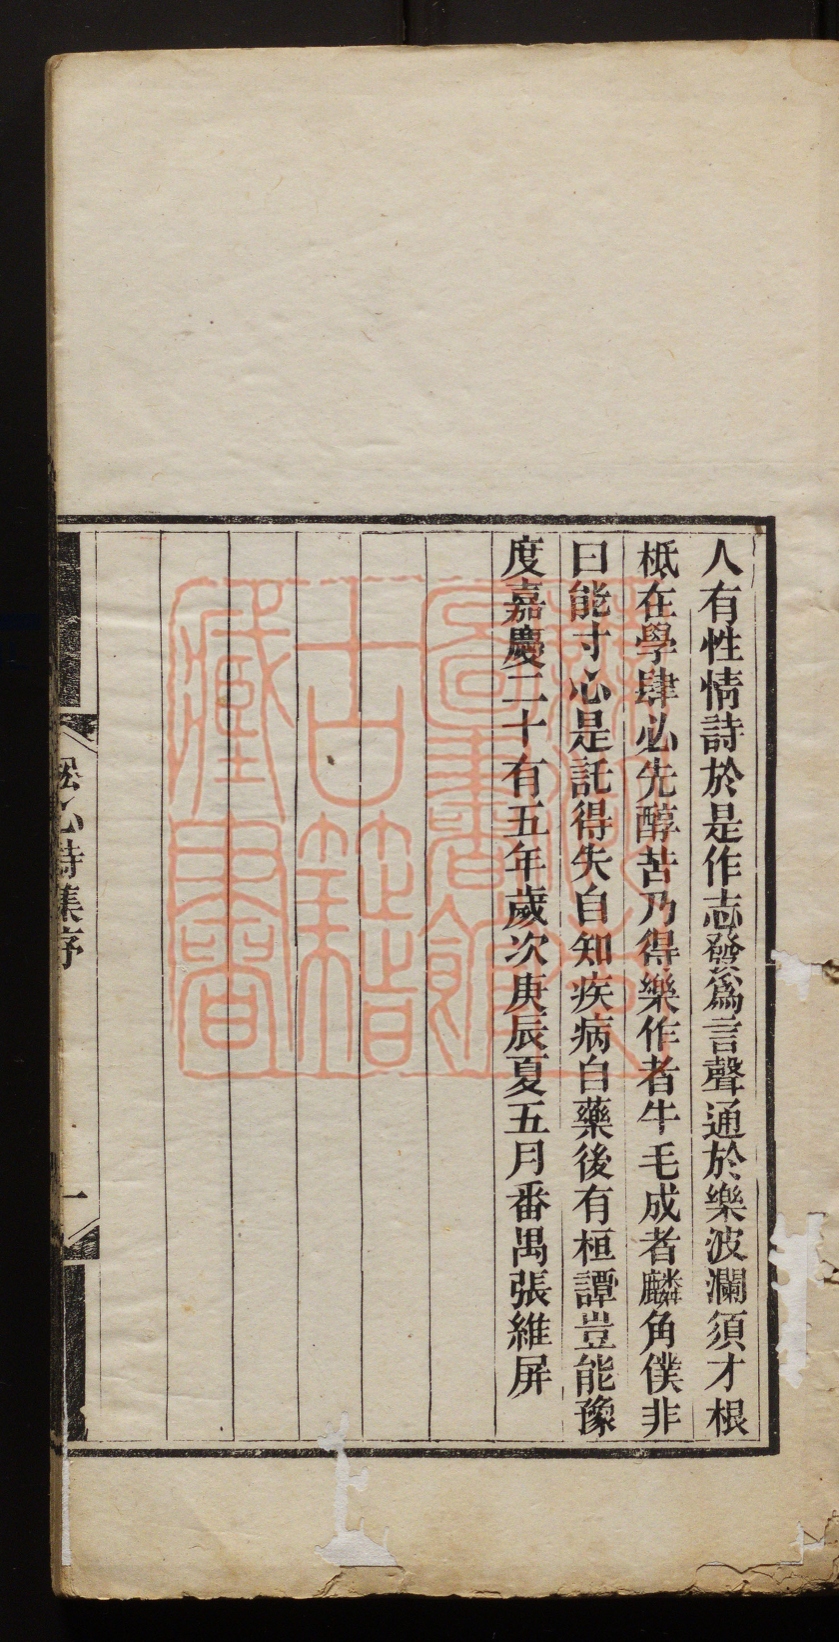 人有性情詩於是作志發爲言聲通於樂波瀾須才根
柢在學肆必先醇苦乃得樂作者牛毛成者麟角僕非
曰能寸心是託得失自知疾病自藥後有桓譚豈能豫
度嘉慶二十有五年歲次庚辰夏五月番禺張維屏
松心詩集序
一
圖書館
古籍
藏書